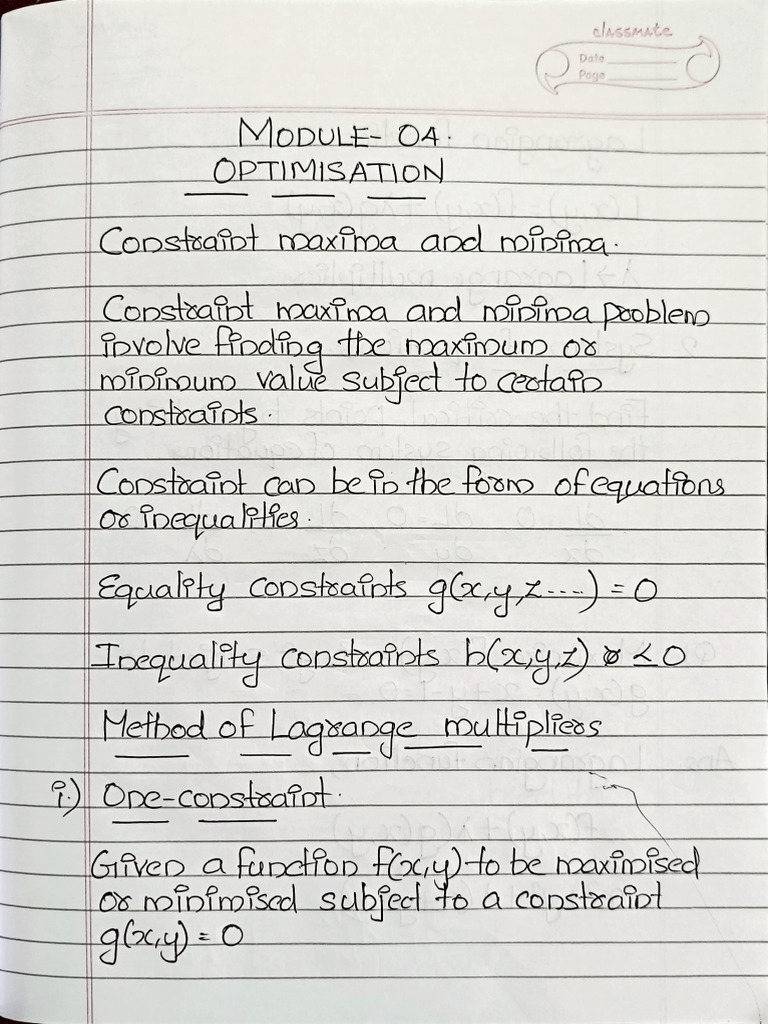 classmate
Date
Page
MODULE- 04.
OPTIMISATION
Constraint maxima and minima.
Constraint maxima and minima problem
involve finding the maximum or
minimum value subject to certain
constraints.
Constraint can be in the form of equations
or inequalities.
Equality constraints g(x,y,z----) = 0
Inequality constraints h(x,y,z) < 0
Method of Lagrange multipliers
i.) One-constraint.
Given a function f(x,y) to be maximised
or minimised subject to a constraint
g(x,y) = 0